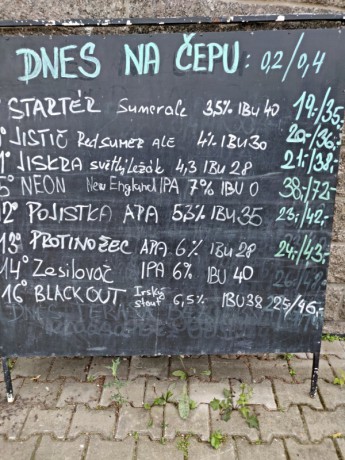 DNES NA ČEPU: 0,2/0,4
° STARTÉR Sumerale 3,5% IBU 40 19,-/35,-
° JISTIČ Red sumer ALE 4% IBU 30 20,-/36,-
1° JISKRA světlý ležák 4,3 IBU 28 21,-/38,-
5° NEON New England IPA 7% IBU 0 38,-/72,-
12° POJISTKA APA 5,3% IBU 35 23,-/42,-
13° PROTINOŽEC APA 6% IBU 28 24,-/43,-
14° Zesilovač IPA 6% IBU 40 26,-/48,-
16° BLACKOUT Irský stout 6,5% IBU 38 25/46,-